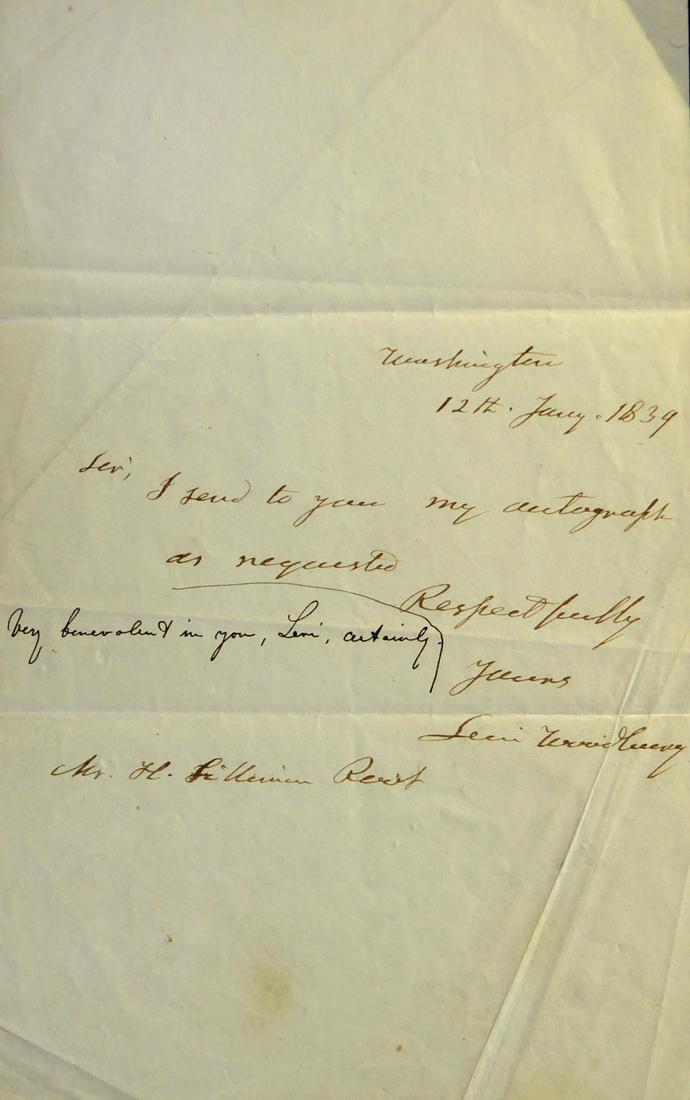 Washington
12th. Jany. 1839
Sir,
I send to you my autograph
as requested
Respectfully
Very benevolent in you, Levi, certainly.
Yours
Levi Woodbury
Mr. H. Silliman